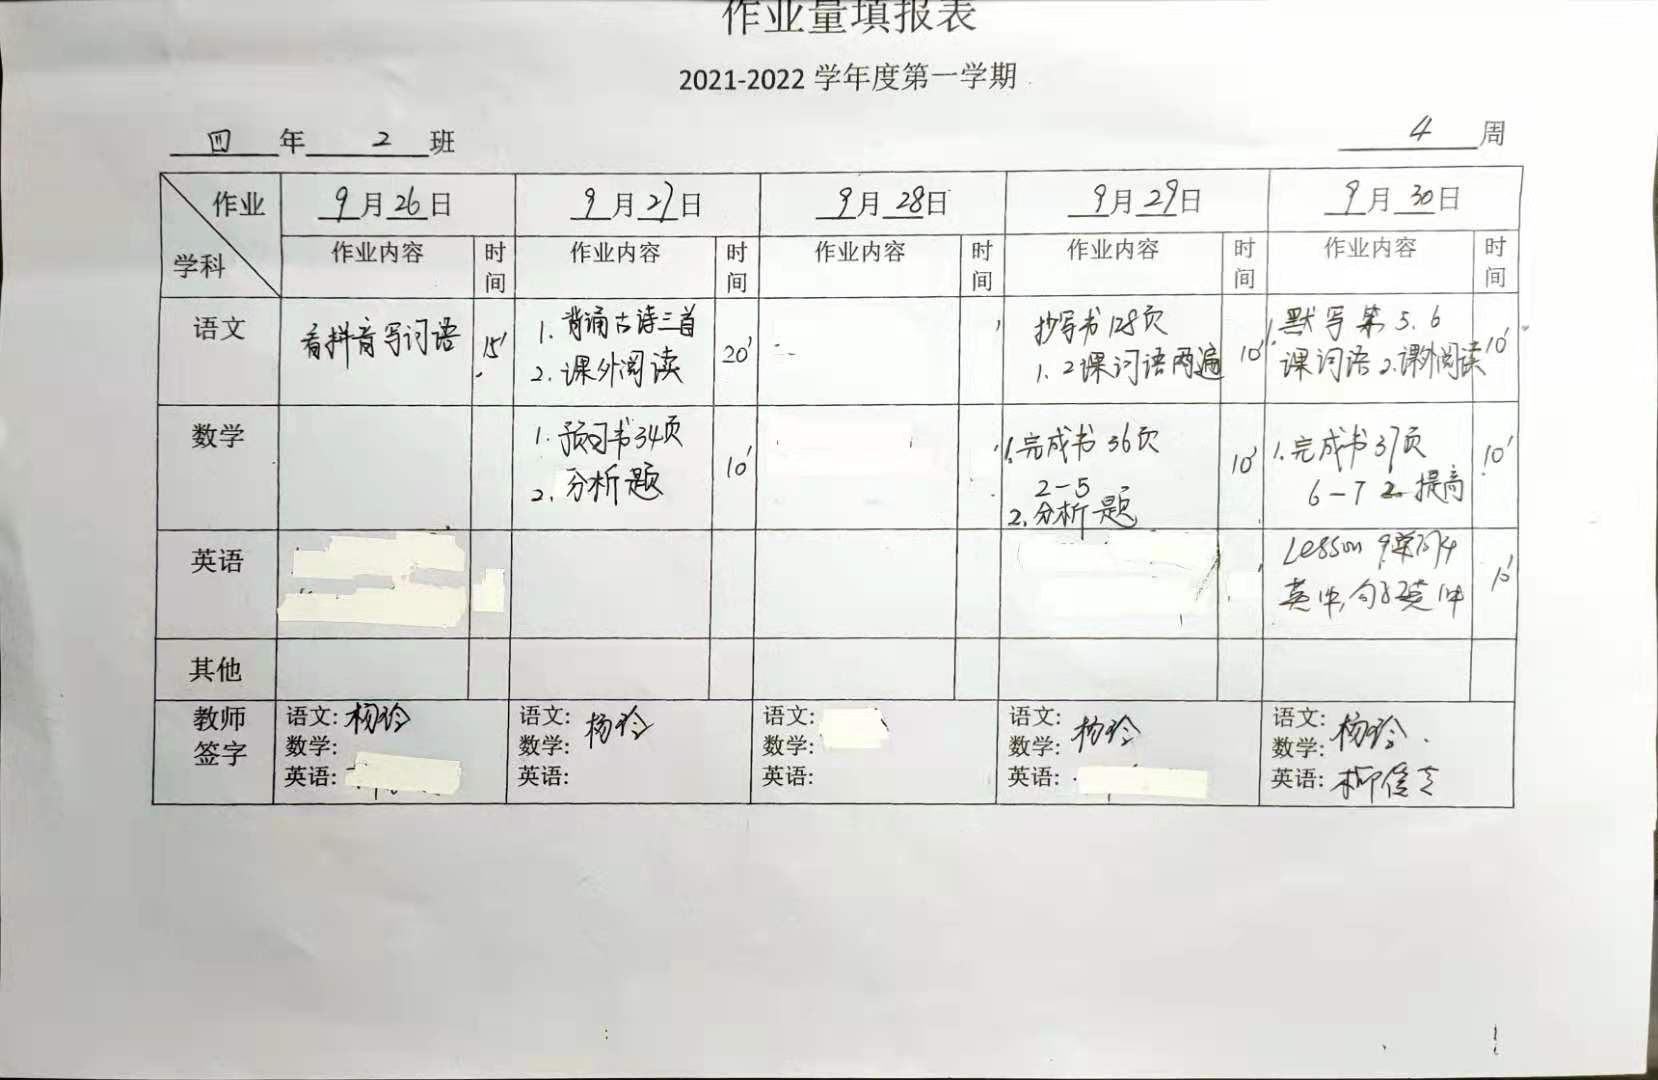 作业量填报表
2021-2022 学年度第一学期
四 年 2 班
4 周
作业
学科
9 月 26 日
9 月 27 日
9 月 28 日
9 月 29 日
9 月 30 日
作业内容 时间
作业内容 时间
作业内容 时间
作业内容 时间
作业内容 时间
语文
看抖音写词语 15'
1. 背诵古诗三首
2. 课外阅读
20'
抄写书128页
1、2课词语两遍
10'
1.默写第5.6
课词语 2.课外阅读
10'
数学
1. 预习书34页
2. 分析题
10'
1.完成书36页
2-5
2.分析题
10'
1.完成书37页
6-7 2.提高
10'
英语
Lesson 9 单词4
英中,句子2英1中
10'
其他
教师
签字
语文: 杨玲
数学:
英语:
语文: 杨玲
数学:
英语:
语文:
数学:
英语:
语文: 杨玲
数学:
英语:
语文: 杨玲
数学:
英语: 柳